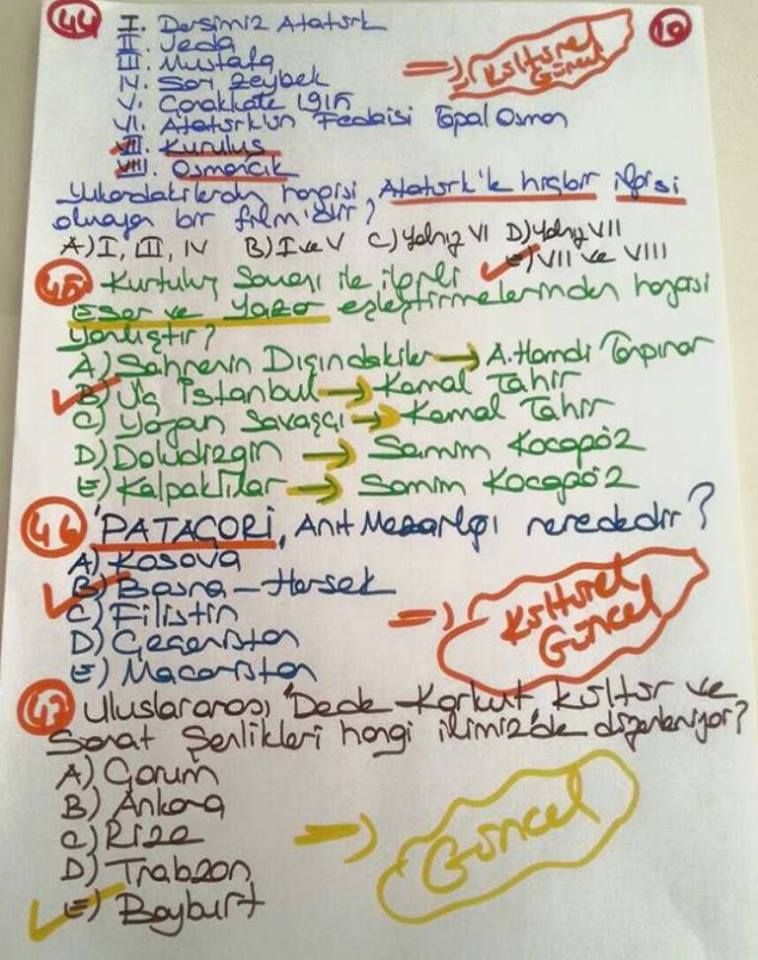 44
10
I. Dersimiz Atatürk
II. Veda
III. Mustafa
IV. Sarı Zeybek
V. Çanakkale 1915
VI. Atatürk'ün Fedaisi Topal Osman
VII. Kuruluş
VIII. Osmancık
=> Kültürel Güncel
Yukarıdakilerden hangisi, Atatürk'le hiçbir ilgisi
olmayan bir film'dir?
A) I, III, IV B) I ve V C) Yalnız VI D) Yalnız VII
E) VII ve VIII
45 Kurtuluş Savaşı ile ilgili
Eser ve Yazar eşleştirmelerinden hangisi
yanlıştır?
A) Sahnenin Dışındakiler → A. Hamdi Tanpınar
B) Üç İstanbul → Kemal Tahir
C) Yorgun Savaşçı → Kemal Tahir
D) Doludizgin → Samim Kocagöz
E) Kalpaklılar → Samim Kocagöz
46 'PATAÇORİ, Anıt Mezarlığı nerededir?
A) Kosova
B) Bosna-Hersek
C) Filistin
D) Çeçenistan
E) Macaristan
=> Kültürel
Güncel
47 Uluslararası 'Dede Korkut, Kültür ve
Sanat Şenlikleri hangi ilimiz'de düzenleniyor?
A) Çorum
B) Ankara
C) Rize
D) Trabzon
E) Bayburt
=> Güncel